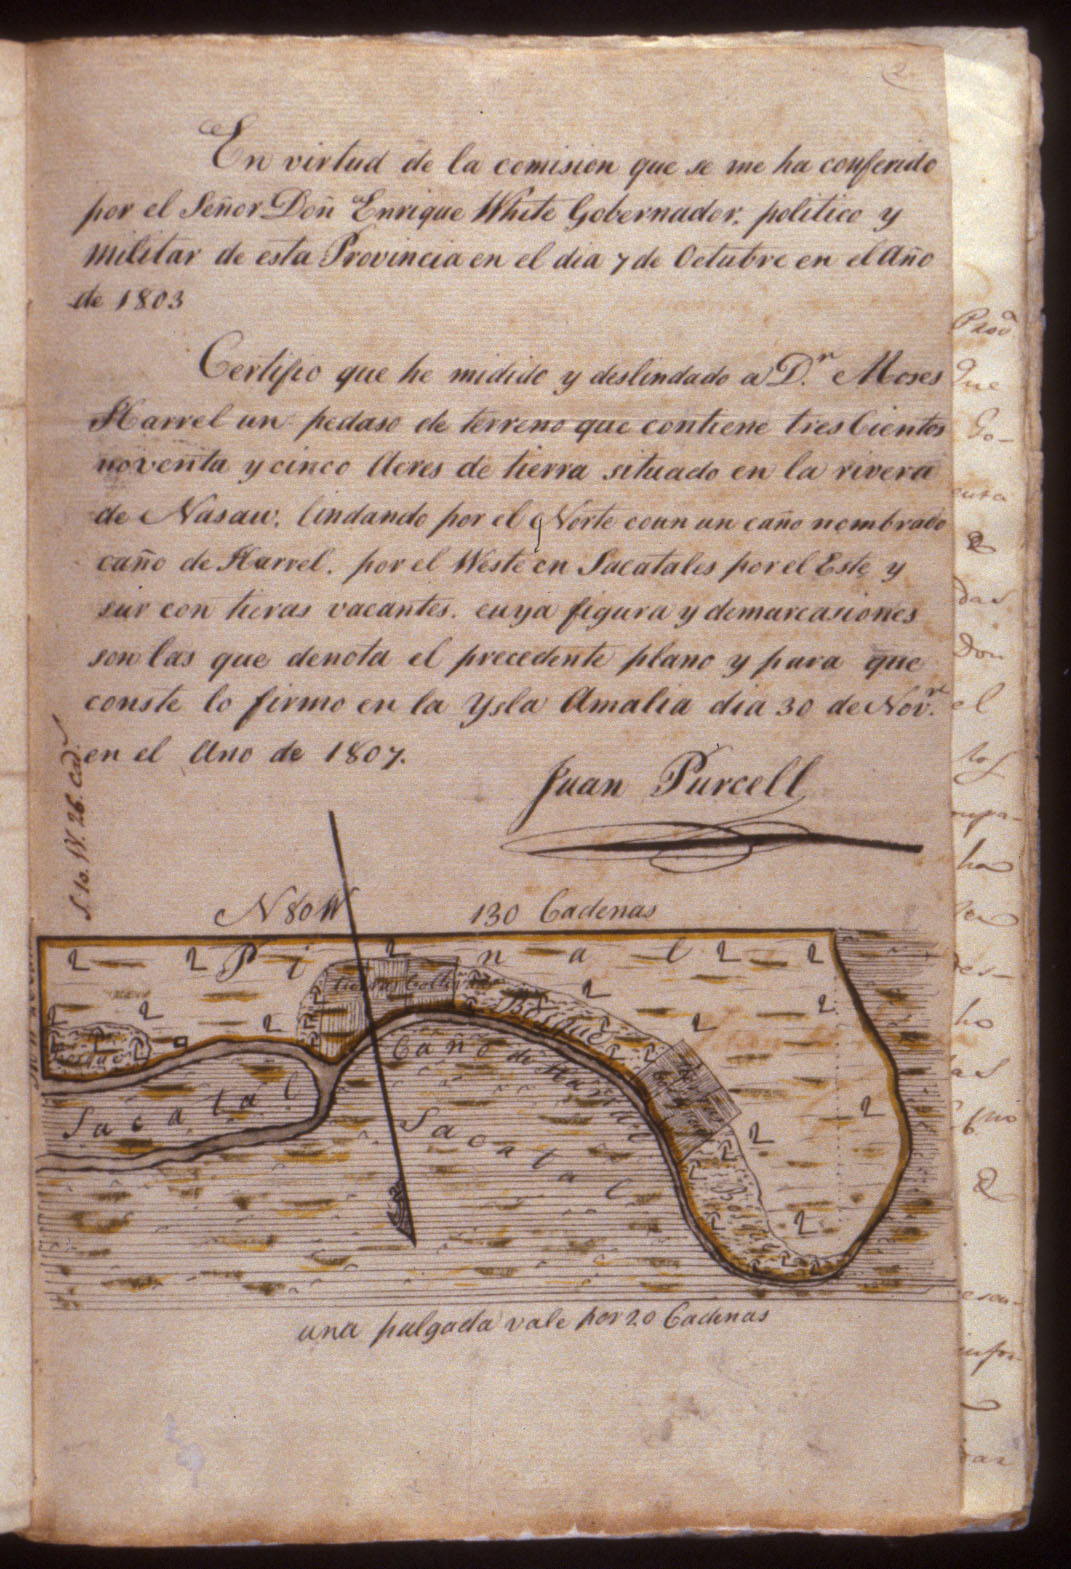 2
En virtud de la comision que se me ha conferido
por el Señor Doñ Enrique White Gobernador. politico y
Militar de esta Provincia en el dia 7 de Octubre en el Año
de 1803
Certifio que he midido y deslindado a D.n Moses
Harrel un pedaso de terreno que contiene tres Cientos
noventa y cinco Acres de tierra situado en la rivera
de Nasau. lindando por el Norte coun un caño nombrado
caño de Harrel. por el Weste en Sacatales por el Este y
sur con tieras vacantes. cuya figura y demarcasiones
son las que denota el precedente plano y para que
conste lo firmo en la Ysla Amalia dia 30 de Nov.r
en el Ano de 1807.
Juan Purcell
S. 10. W. 26. Cad.s
N 80 W 130 Cadenas
Pinal
tieras Collivas
Bosque
Bosque
Caño de Harral
Sacatal
Sacatal
Bosque
una pulgada vale por 20 Cadenas
Que
Go-
das
Don
el
ha
des-
ho
das
infor-
dar